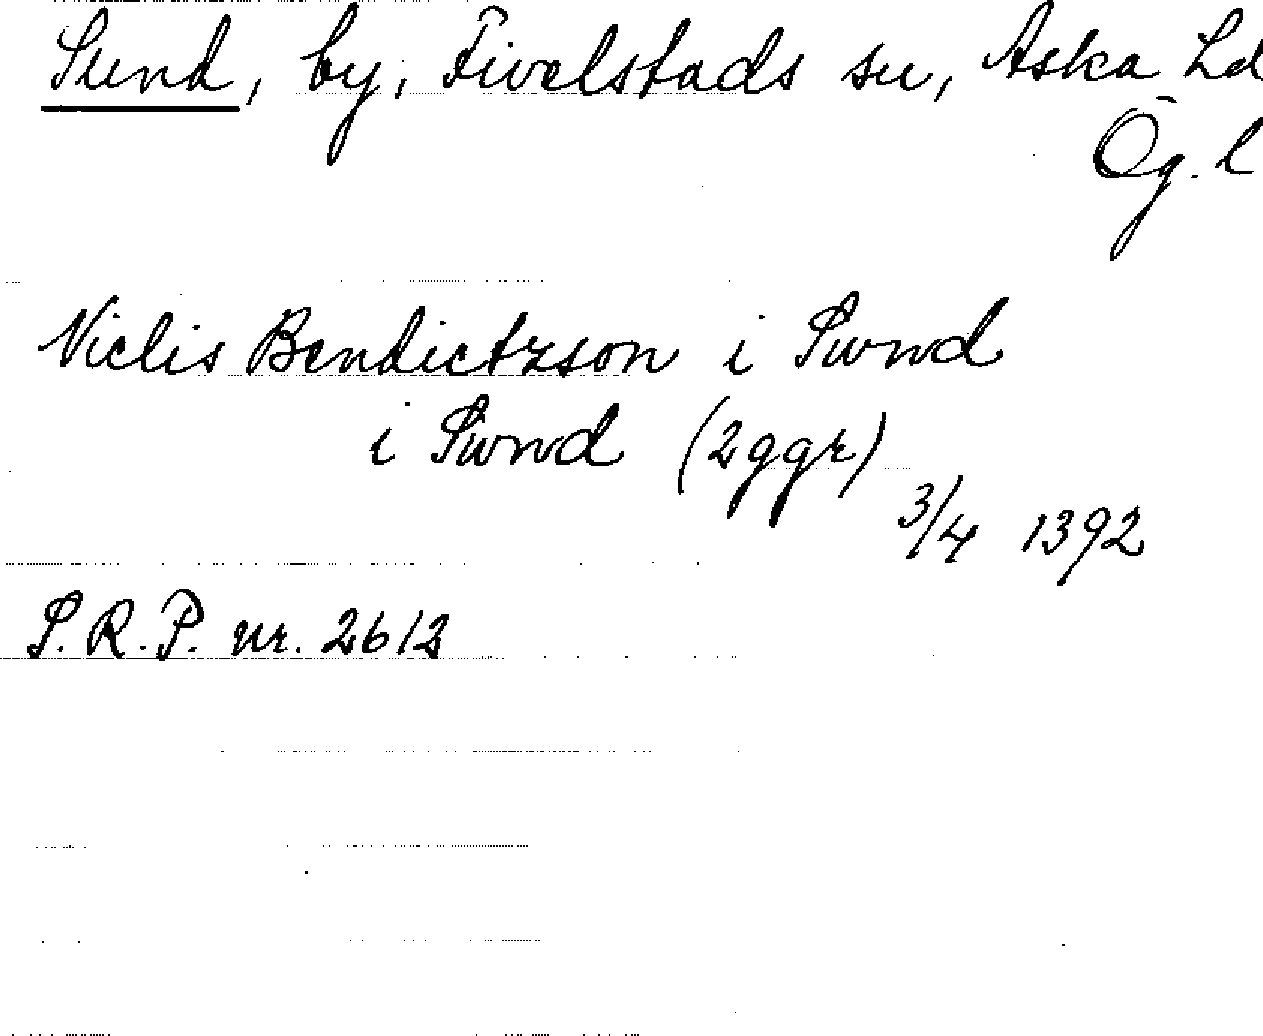 Sund, by, Fivelstads sn, Aska hd
Ög. l
Niclis Bendictzson i Swnd
i Swnd (2 ggr)
3/4 1392
S.R.P. nr. 2612